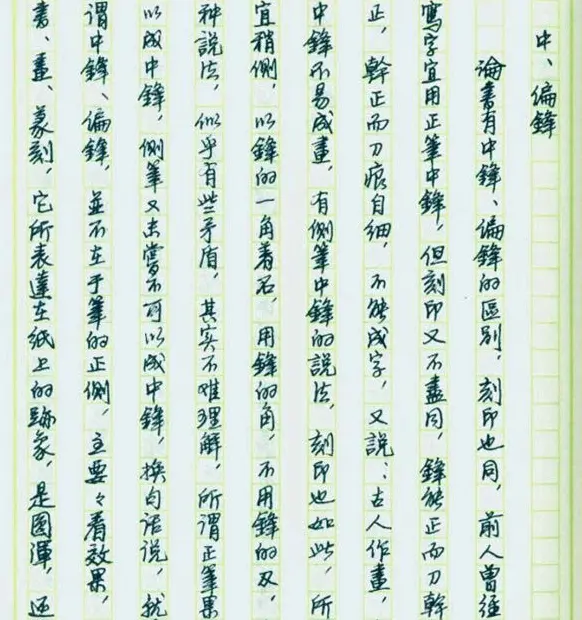 中、偏鋒
論書有中鋒、偏鋒的區别，刻印也同，前人曾經
寫字宜用正筆中鋒，但刻印又不盡同，鋒能正而刀幹
正，幹正而刀痕自細，不能成字，又說：古人作畫，
中鋒不易成畫，有側筆中鋒的說法，刻印也如此，所
宜稍側，以鋒的一角着石，用鋒的角，不用鋒的刄，
种說法，似乎有些矛盾，其实不难理解，所謂正筆果
以成中鋒，側筆又未嘗不可以成中鋒，换句话说，就
謂中鋒、偏鋒，並不在于筆的正側，主要々看效果，
書、畫、篆刻，它所表達在纸上的跡象，是圆渾，还